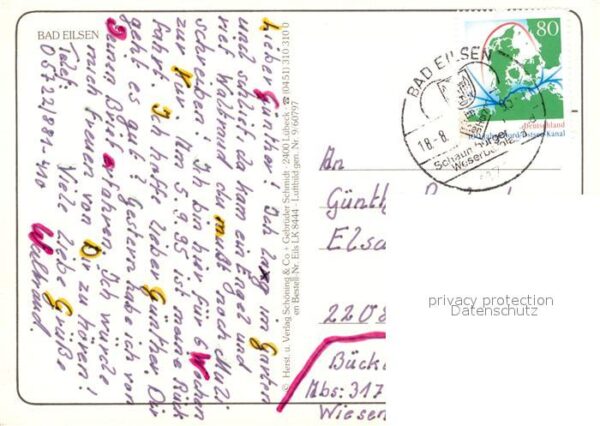 BAD EILSEN
Lieber Günther! Ich lag im Garten
und schlief, da kam ein Engel und
rief Waltraud du mußt noch Mulz.
schreiben. Ich bin hir, für 6 Wochen
zur Kur. Am 5.9.95 ist meine Rück
fahrt. Ich hoffe lieber Günther, Dir
geht es gut! Gestern habe ich von
Deinen Brief erfahren. Ich würde
mich freuen von Dir zu hören!
Viele liebe Grüße
Waltraud.
Telef:
05722/881-410
© Herst. u. Verlag Schöning & Co + Gebrüder Schmidt · 2400 Lübeck · ☎ (0451) 310 310 0
en Bestell-Nr. Eils LK 8444 - Luftbild gen. Nr.: 9/60797
80
Deutschland
100 Jahre Nord-Ostsee-Kanal
BAD EILSEN
18.-8.
Schaumburger
Weserbergland
An
Günth
Elsa
2208
Bück
Abs: 317
Wiesen
privacy protection
Datenschutz